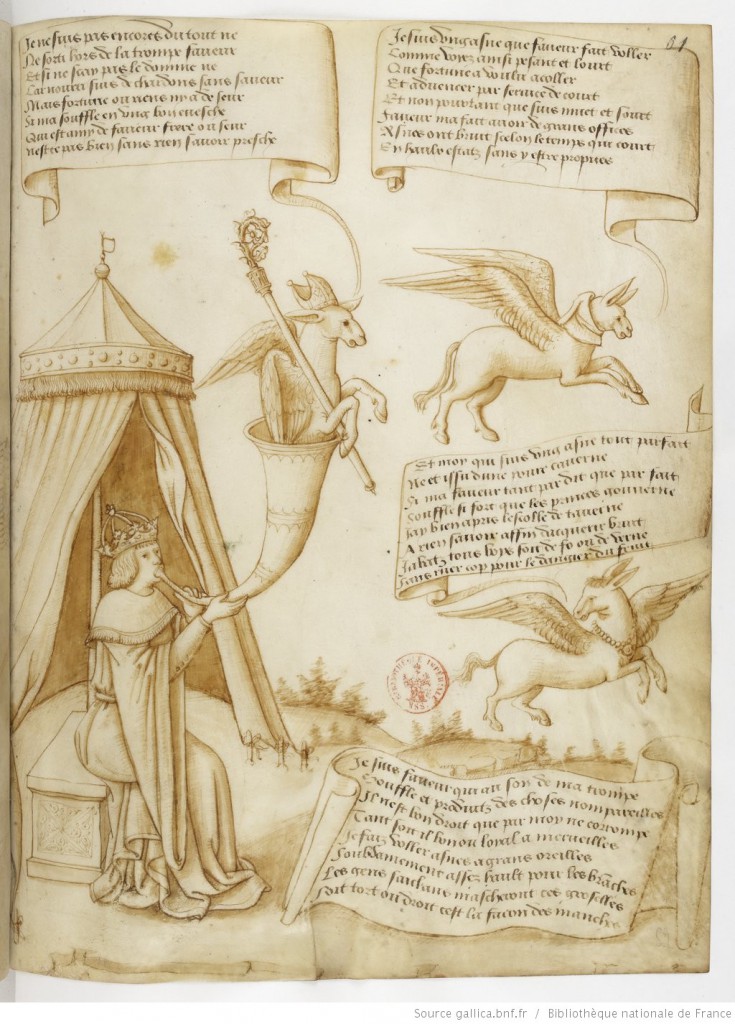 Je ne suis pas encores du tout ne
Ne sorti hors de la trompe faveur
Et si ne scay pas le domine ne
Car nourri suis de chardons sans saveur
Mais fortune ou riens ny a de seur
Si ma souffle en ung bon evesche
Qui est amy de faveur frere ou seur
Nest ce pas bien sans rien savoir presche
81
Je suis ung asne que faveur fait voller
Comme voyez ainsi pesant et lourt
Que fortune a voulu acoller
Et advencer par service de court
Et non pourtant que suis muet et sourt
Faveur ma fait avoir de grans offices
Asnes ont bruit scelon le temps qui court
En haulx estatz sans y estre propices
Et moy qui suis ung asne tout parfait
Ne et issu dune povre caverne
Si ma faveur tant par dit que par fait
Souffle si fort que les princes gouverne
Jay bien apris lescolle de taverne
A rien savoir affin dacquerir bruit
Jabatz tous boys soit de fo ou de verne
Sans ruer cop pour le dangier du
Je suis faveur qui au son de ma trompe
Souffle et produitz des choses nompareilles
Il nest bon droit que par moy ne corrompe
Tant soit il bon ou loyal a merveilles
Je faiz voller asnes a grans oreilles
Soubdainement assez hault pour les branches
Les gens sachans mascheront ces groselles
Soit tort ou droit cest la facon des manches
BIBLIOTHÈQUE IMPÉRIALE MSS
Source gallica.bnf.fr / Bibliothèque nationale de France